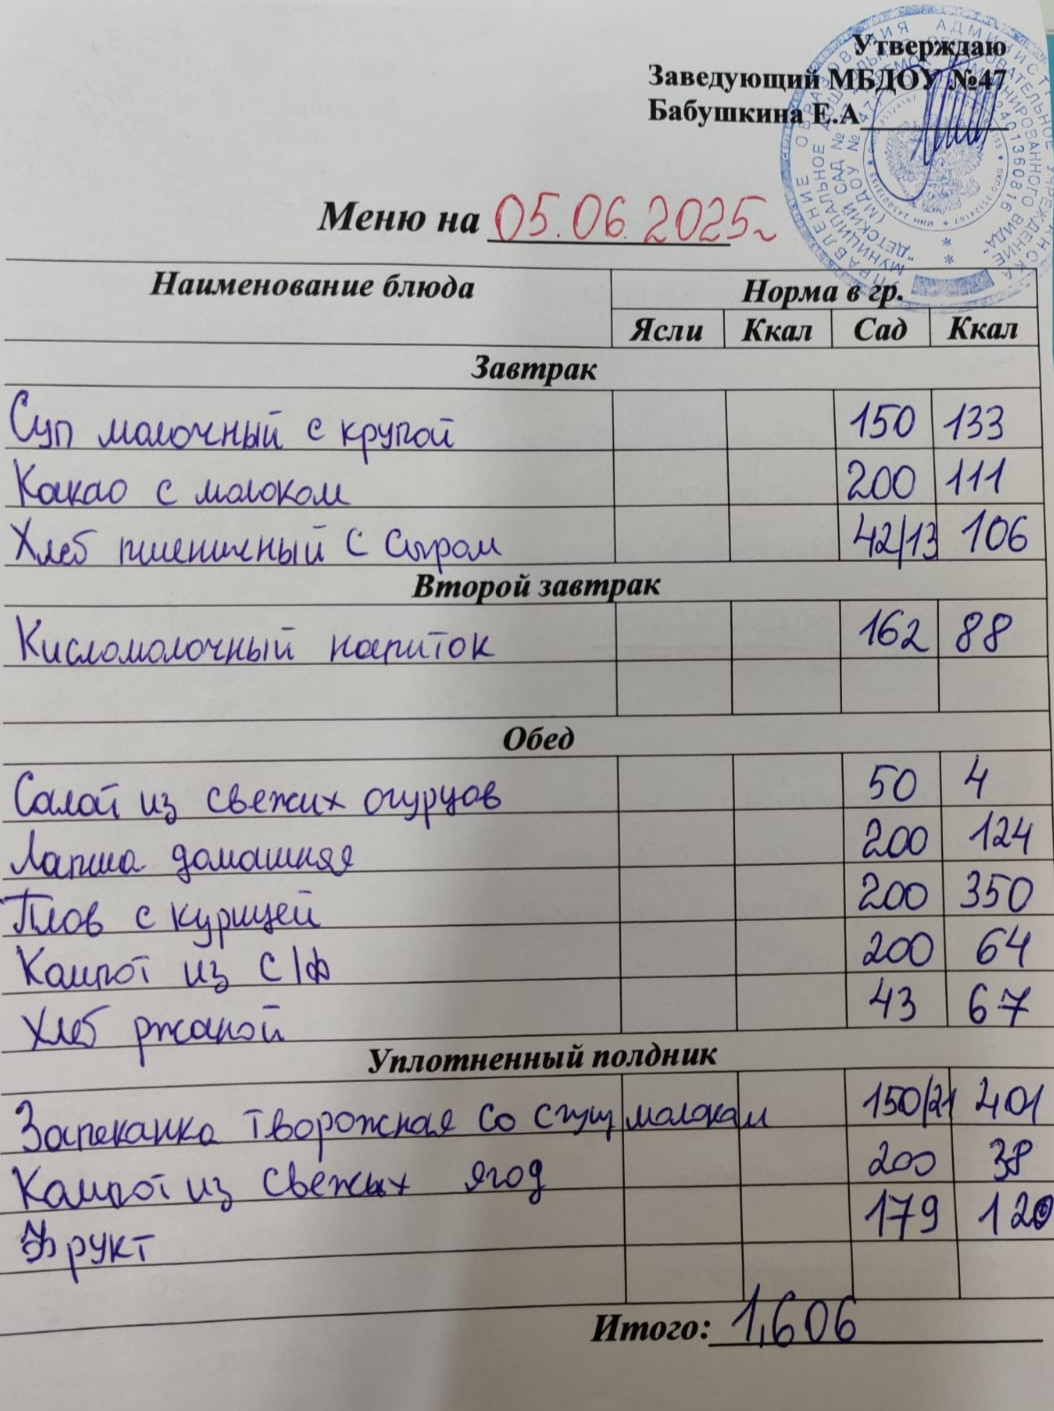 Утверждаю
Заведующий МБДОУ №47
Бабушкина Е.А
Меню на 05.06.2025г
Наименование блюда Норма в гр.
Ясли Ккал Сад Ккал
Завтрак
Суп молочный с крупой 150 133
Какао с молоком 200 111
Хлеб пшеничный с сыром 42/13 106
Второй завтрак
Кисломолочный напиток 162 88
Обед
Салат из свежих огурцов 50 4
Лапша домашняя 200 124
Плов с курицей 200 350
Компот из с/ф 200 64
Хлеб ржаной 43 67
Уплотненный полдник
Запеканка творожная со сгущ молоком 150/21 401
Компот из свежых ягод 200 38
Фрукт 179 120
Итого: 1,606